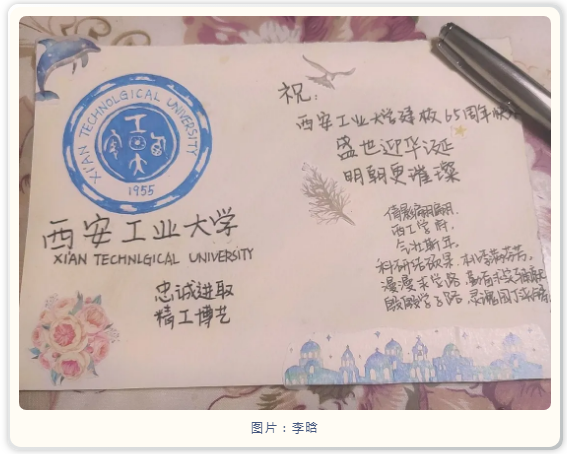 XI'AN TECHNOLGICAL UNIVERSITY
1955
西安工业大学
XI'AN TECHNLGICAL UNIVERSITY
忠诚进取
精工博艺
祝:
西安工业大学建校65周年快乐
盛世迎华诞
明朝更璀璨
倩影翩翩
西工学府
科研结硕果
漫漫求学路
图片:李晗